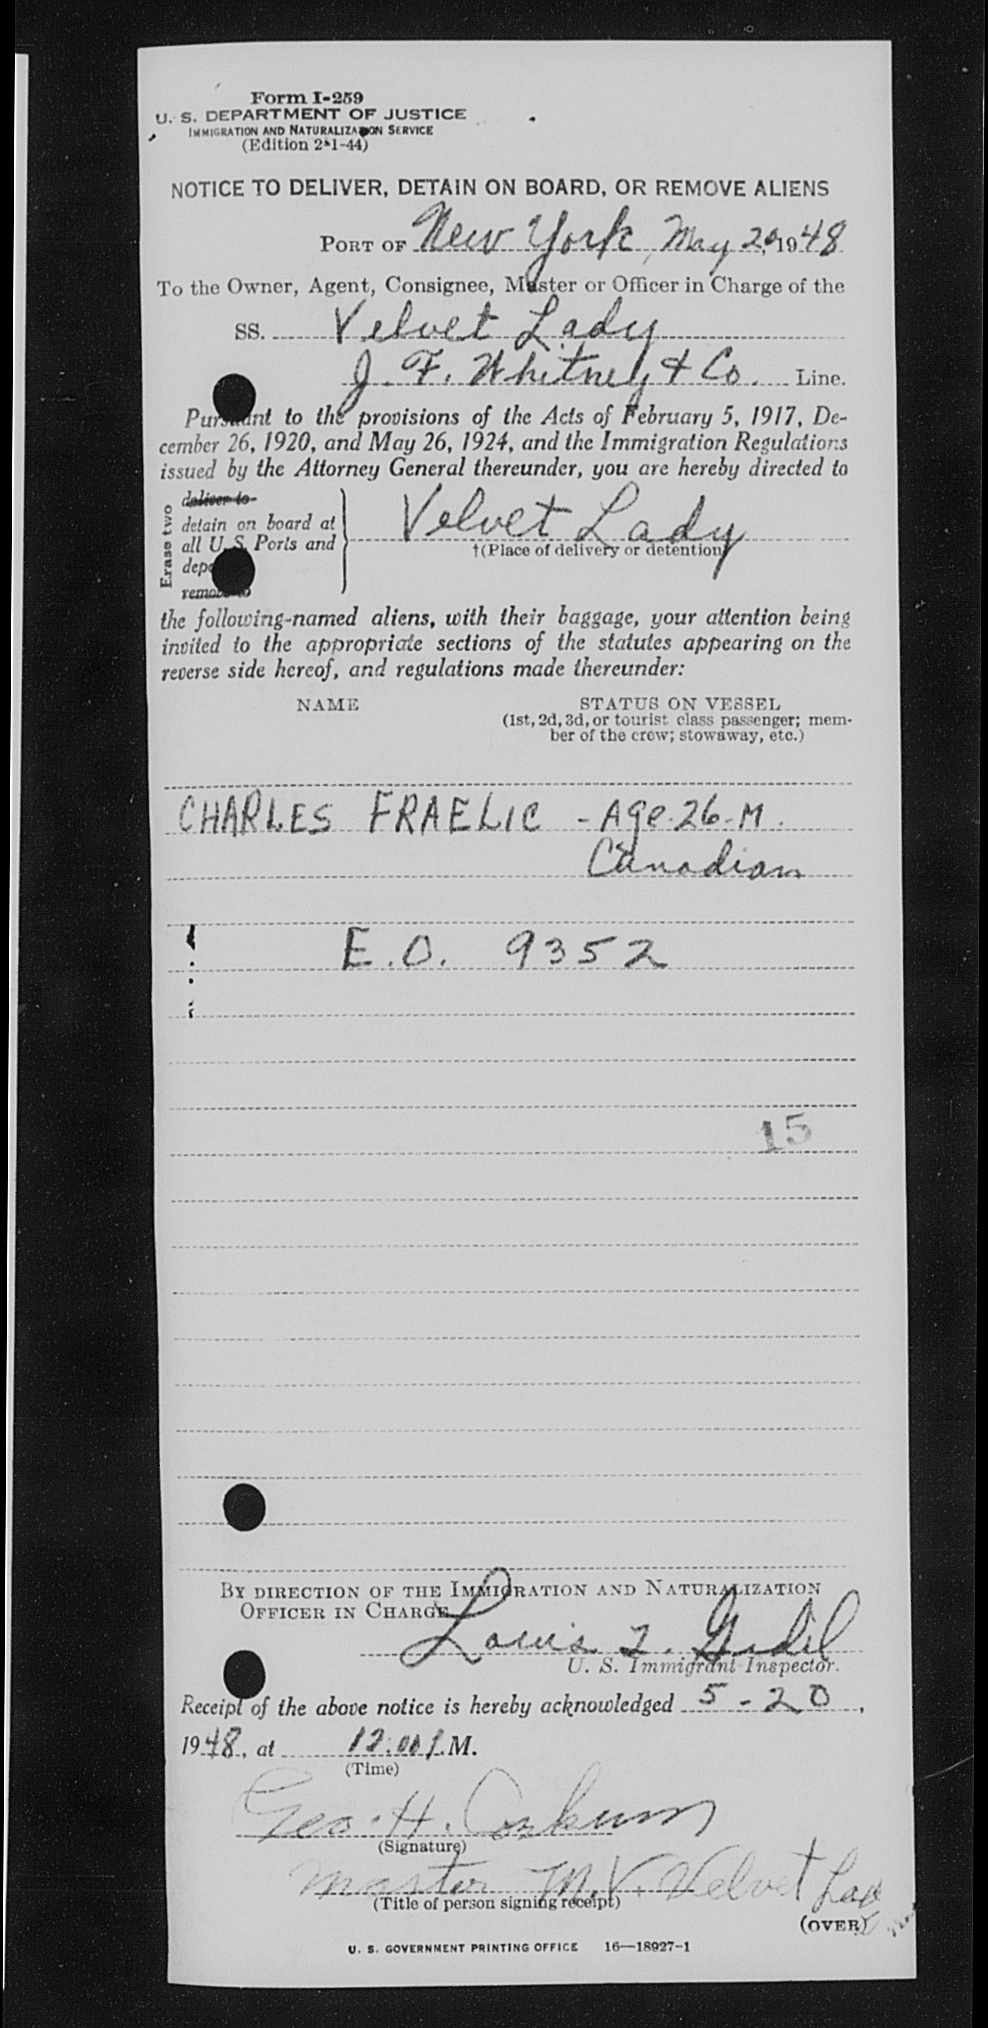 Form I-259
U. S. DEPARTMENT OF JUSTICE
IMMIGRATION AND NATURALIZATION SERVICE
(Edition 2-1-44)
NOTICE TO DELIVER, DETAIN ON BOARD, OR REMOVE ALIENS
PORT OF New York, May 20, 1948
To the Owner, Agent, Consignee, Master or Officer in Charge of the
SS. Velvet Lady
J. F. Whitney & Co. Line.
Pursuant to the provisions of the Acts of February 5, 1917, De-
cember 26, 1920, and May 26, 1924, and the Immigration Regulations
issued by the Attorney General thereunder, you are hereby directed to
Erase two
deliver to
detain on board at
all U. S. Ports and
remove to
Velvet Lady
†(Place of delivery or detention)
the following-named aliens, with their baggage, your attention being
invited to the appropriate sections of the statutes appearing on the
reverse side hereof, and regulations made thereunder:
NAME STATUS ON VESSEL
(1st, 2d, 3d, or tourist class passenger; mem-
ber of the crew; stowaway, etc.)
CHARLES FRAELIC - Age-26-M.
Canadian
E.O. 9352
15
BY DIRECTION OF THE IMMIGRATION AND NATURALIZATION
OFFICER IN CHARGE
Louis
U. S. Immigrant Inspector.
Receipt of the above notice is hereby acknowledged 5-20,
1948, at 12:00 P.M.
(Time)
Geo. H.
(Signature)
Master M.V. Velvet Lady
(Title of person signing receipt)
(OVER)
U. S. GOVERNMENT PRINTING OFFICE 16—18927-1